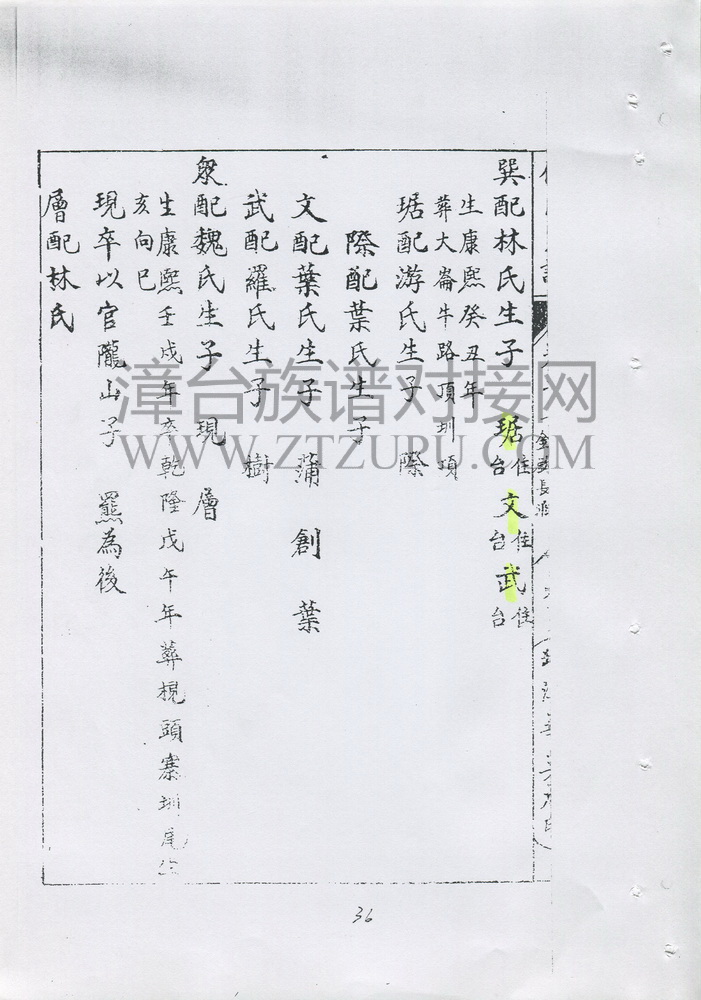 巽配林氏生子 琚住台 文住台 武住台
生康熙癸丑年
葬大崙牛路頂圳頂
琚配游氏生子 際
際配葉氏生子
文配葉氏生子 蒲 創 葉
武配羅氏生子 樹
眾配魏氏生子 現 層
生康熙壬戌年卒乾隆戊午年葬梘頭寨圳尾
亥向巳
現卒以官隴山子 羆為後
層配林氏
漳台族谱对接网
WWW.ZTZUPU.COM
36